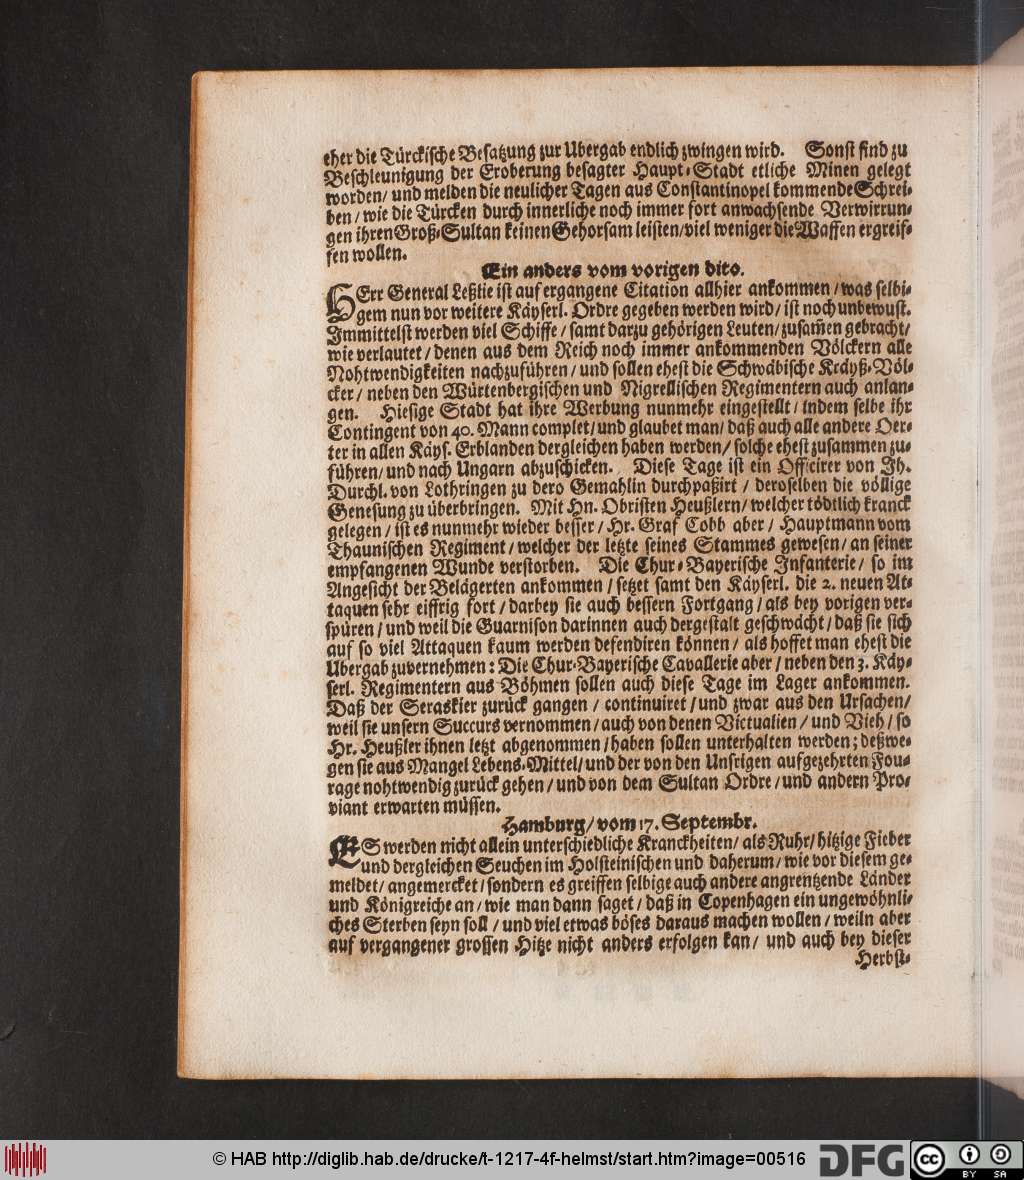 eher die Türckische Besatzung zur Ubergab endlich zwingen wird. Sonst sind zu
Beschleunigung der Eroberung besagter Haupt-Stadt etliche Minen gelegt
worden/ und melden die neulicher Tagen aus Constantinopel kommende Schrei-
ben/ wie die Türcken durch innerliche noch immer fort anwachsende Verwirrun-
gen ihren Groß-Sultan keinen Gehorsam leisten/ viel weniger die Waffen ergreif-
fen wollen.
Ein anders vom vorigen dito.
HErr General Leßlie ist auf ergangene Citation allhier ankommen/ was selbi-
gem nun vor weitere Käyserl. Ordre gegeben werden wird/ ist noch unbewust.
Immittelst werden viel Schiffe/ samt darzu gehörigen Leuten/ zusam̃en gebracht/
wie verlautet/ denen aus dem Reich noch immer ankommenden Völckern alle
Nohtwendigkeiten nachzuführen/ und sollen ehest die Schwäbische Kräyß-Völ-
cker/ neben den Würtenbergischen und Nigrellischen Regimentern auch anlan-
gen. Hiesige Stadt hat ihre Werbung nunmehr eingestellt/ indem selbe ihr
Contingent von 40. Mann complet/ und glaubet man/ daß auch alle andere Oer-
ter in allen Käys. Erblanden dergleichen haben werden/ solche ehest zusammen zu-
führen/ und nach Ungarn abzuschicken. Diese Tage ist ein Officirer von Ih.
Durchl. von Lothringen zu dero Gemahlin durchpaßirt/ deroselben die völlige
Genesung zu überbringen. Mit Hn. Obristen Heußlern/ welcher tödtlich kranck
gelegen/ ist es nunmehr wieder besser/ Hr. Graf Cobb aber/ Hauptmann vom
Thaunischen Regiment/ welcher der letzte seines Stammes gewesen/ an seiner
empfangenen Wunde verstorben. Die Chur-Bayerische Infanterie/ so im
Angesicht der Belägerten ankommen/ setzet samt den Käyserl. die 2. neuen At-
taquen sehr eiffrig fort/ darbey sie auch bessern Fortgang/ als bey vorigen ver-
spüren/ und weil die Guarnison darinnen auch dergestalt geschwächt/ daß sie sich
auf so viel Attaquen kaum werden defendiren können/ als hoffet man ehest die
Ubergab zuvernehmen: Die Chur-Bayerische Cavallerie aber/ neben den 3. Käy-
serl. Regimentern aus Böhmen sollen auch diese Tage im Lager ankommen.
Daß der Seraskier zurück gangen/ continuiret/ und zwar aus den Ursachen/
weil sie unsern Succurs vernommen/ auch von denen Victualien/ und Vieh/ so
Hr. Heußler ihnen letzt abgenommen/ haben sollen unterhalten werden; deßwe-
gen sie aus Mangel Lebens-Mittel/ und der von den Unsrigen aufgezehrten Fou-
rage nohtwendig zurück gehen/ und von dem Sultan Ordre/ und andern Pro-
viant erwarten müssen.
Hamburg/ vom 17. Septembr.
ES werden nicht allein unterschiedliche Kranckheiten/ als Ruhr/ hitzige Fieber
und dergleichen Seuchen im Holsteinischen und daherum/ wie vor diesem ge-
meldet/ angemercket/ sondern es greiffen selbige auch andere angrentzende Länder
und Königreiche an/ wie man dann saget/ daß in Copenhagen ein ungewöhnli-
ches Sterben seyn soll/ und viel etwas böses daraus machen wollen/ weiln aber
auf vergangener grossen Hitze nicht anders erfolgen kan/ und auch bey dieser
Herbst-
© HAB http://diglib.hab.de/drucke/t-1217-4f-helmst/start.htm?image=00516
DFG
cc BY SA